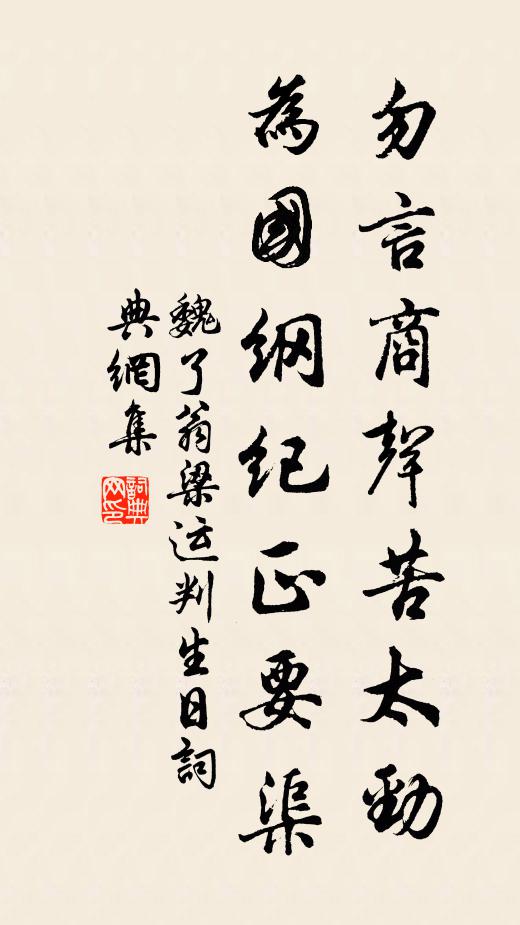 勿言商聲苦太勁
為國綱紀正要渠
魏了翁梁运判生日詞
典網集
詞典网印